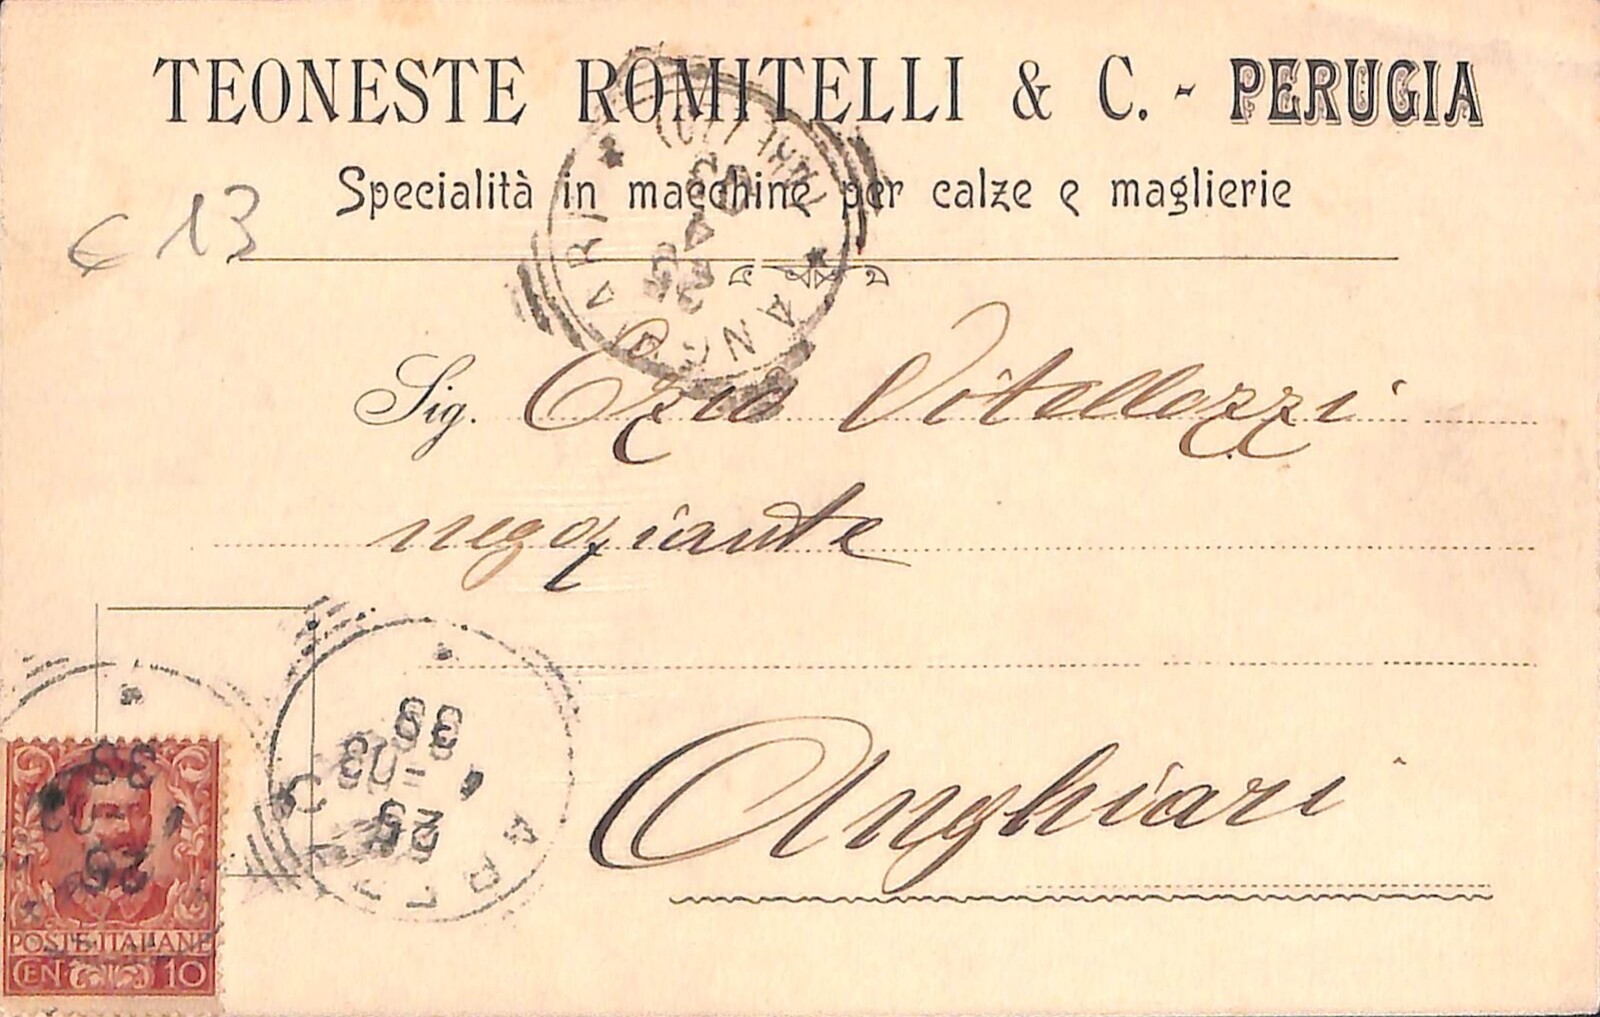 TEONESTE ROMITELLI & C. - PERUGIA
Specialità in macchine per calze e maglierie
€ 13
ANGHIARI
Sig. Ozio Vitellozzi
negoziante
Anghiari
25
POSTE ITALIANE
CEN 10